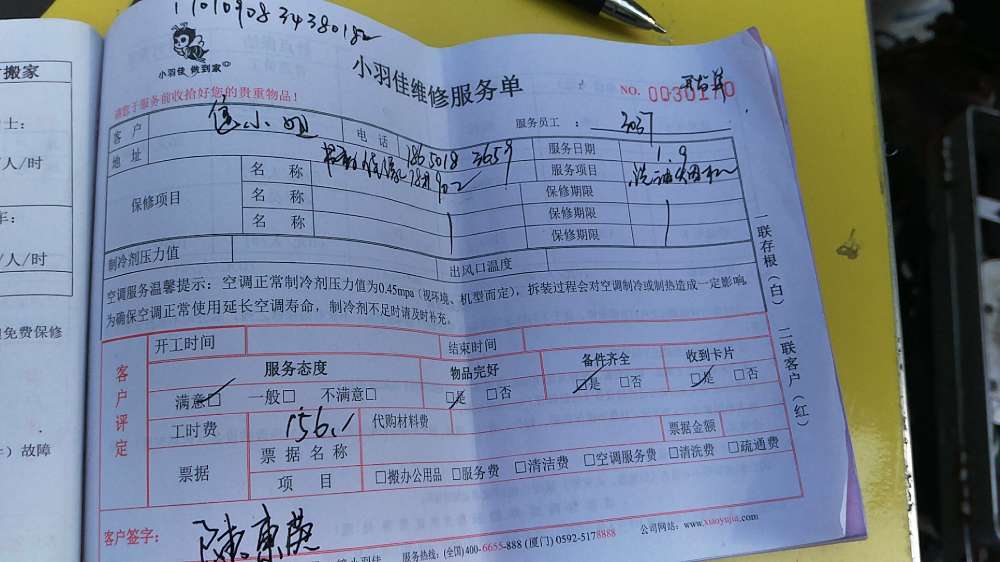 1701090834380182
小羽佳 做到家
搬家
小羽佳维修服务单
NO. 0030170
请您于服务前收拾好您的贵重物品！
服务员工：
客户 小姐 电话 18650183659 服务日期 1.9
地址 服务项目 洗油烟机
保修项目 名称 保修期限
名称 保修期限
名称 保修期限
制冷剂压力值 出风口温度
空调服务温馨提示：空调正常制冷剂压力值为0.45mpa（视环境、机型而定），拆装过程会对空调制冷或制热造成一定影响。
为确保空调正常使用延长空调寿命，制冷剂不足时请及时补充。
客户评定 开工时间 结束时间
服务态度 物品完好 备件齐全 收到卡片
满意□ 一般□ 不满意□ □是 □否 □是 □否 □是 □否
工时费 156 代购材料费
票据 票据名称 票据金额
项目 □搬办公用品 □服务费 □清洁费 □空调服务费 □清洗费 □疏通费
客户签字：
服务热线：(全国)400-6655-888 (厦门) 0592-5178888 公司网站：www.xiaoyujia.com
一联存根（白） 二联客户（红）
人/时
车：
/人/时
免费保修
）故障